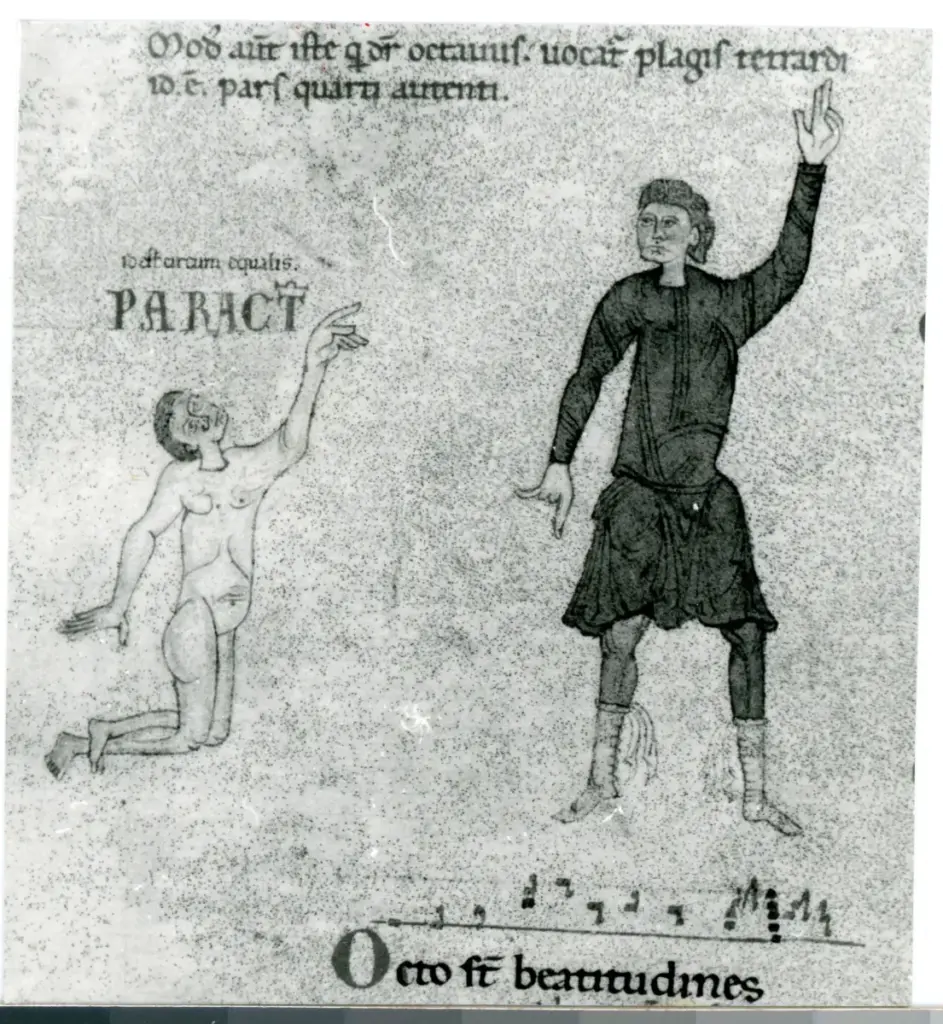 Mod̄ aūt iste q̄ dr̄ octauus. uocat̄ plagis tetrardi
id.ē. pars quarti autenti.
equalis.
PARACT̄
Octo st̄ beatitudines